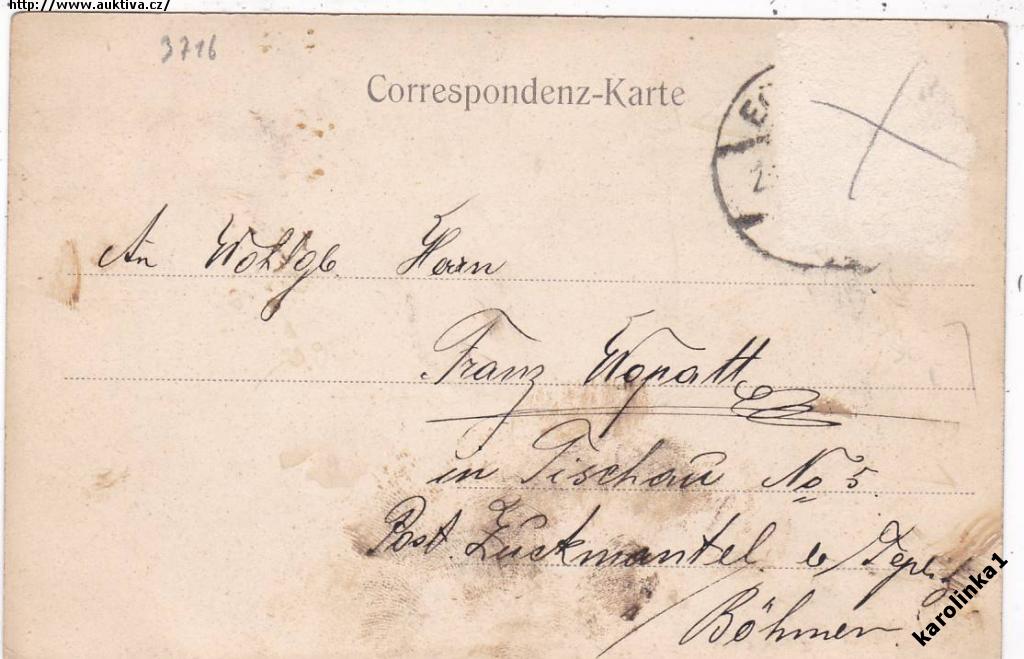 http://www.auktiva.cz/
3716
Correspondenz-Karte
An Wohlgb. Herrn
Franz Wopatt
in Tischau No 5.
Post Zuckmantel b/
Böhmen
karolinka1